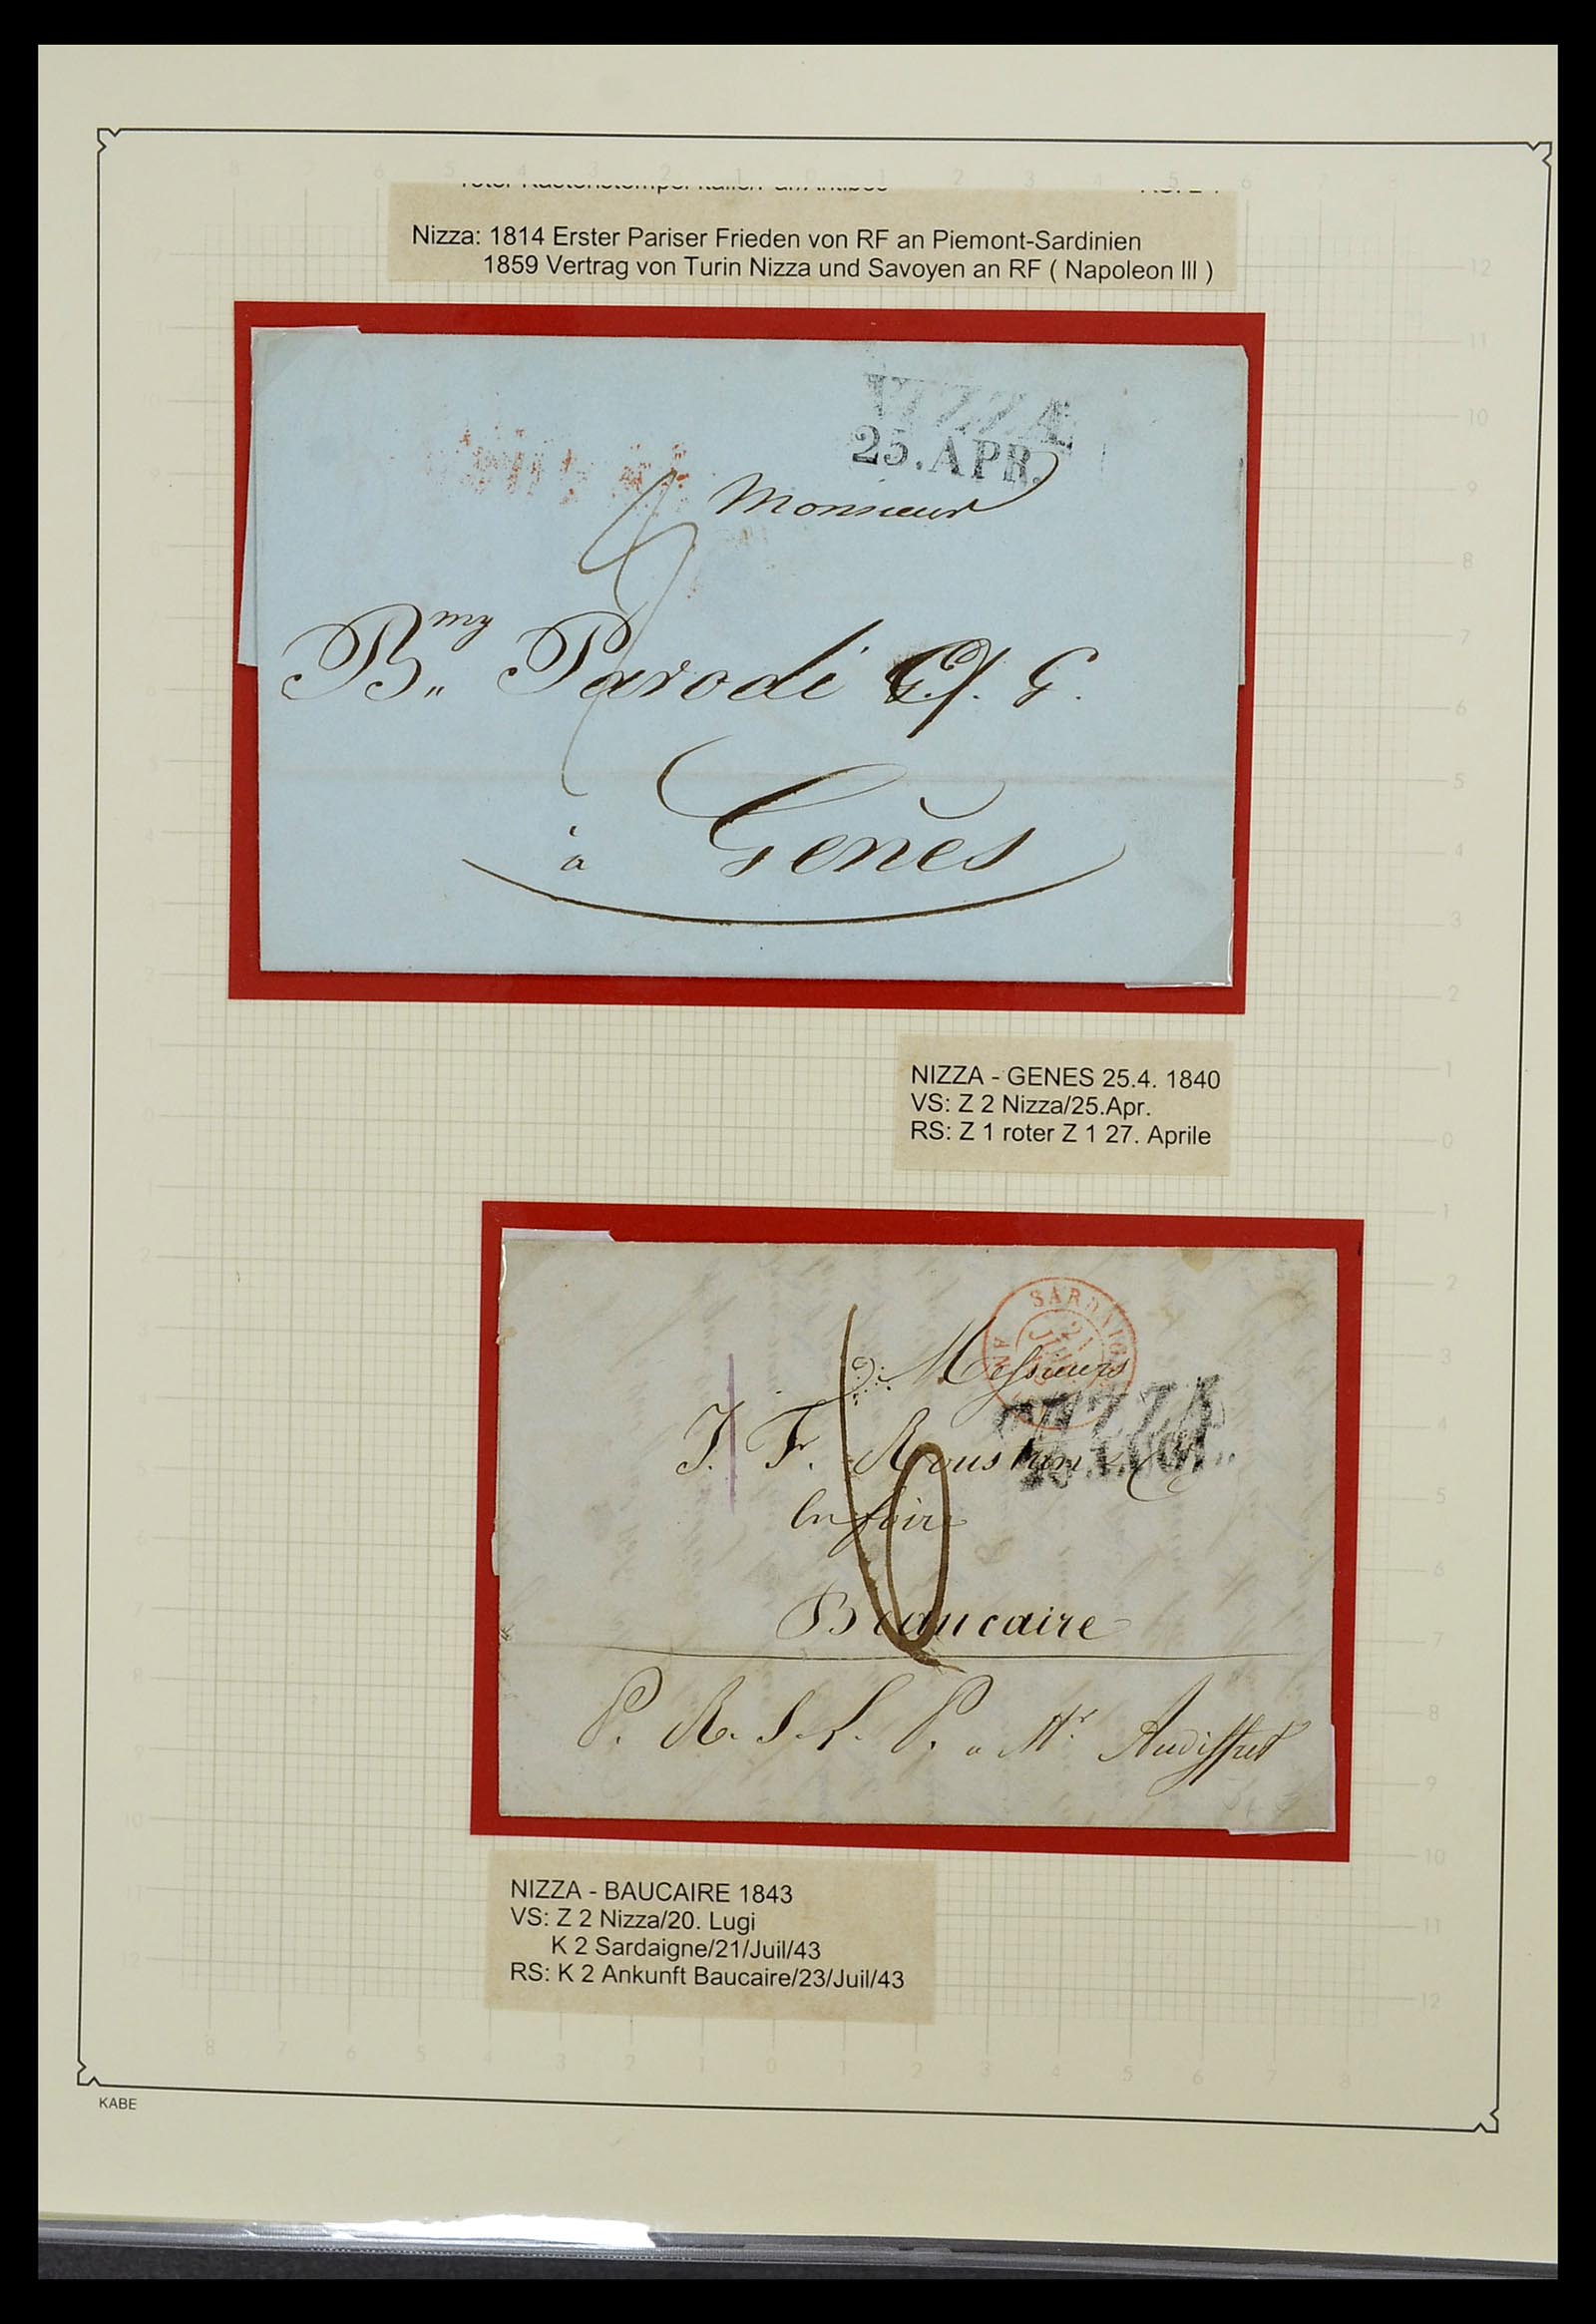 Nizza: 1814 Erster Pariser Frieden von RF an Piemont-Sardinien
1859 Vertrag von Turin Nizza und Savoyen an RF ( Napoleon III )
NIZZA
25.APR.
Monsieur
Bmy Parodi & G.
à Gênes
NIZZA - GENES 25.4. 1840
VS: Z 2 Nizza/25.Apr.
RS: Z 1 roter Z 1 27. Aprile
SARDAIGNE
21
Messieurs
NIZZA
J. Fr. Roustan
En foire
Beaucaire
P. R. S. L. P. a Mr Audiffret
NIZZA - BAUCAIRE 1843
VS: Z 2 Nizza/20. Lugi
K 2 Sardaigne/21/Juil/43
RS: K 2 Ankunft Baucaire/23/Juil/43
KABE